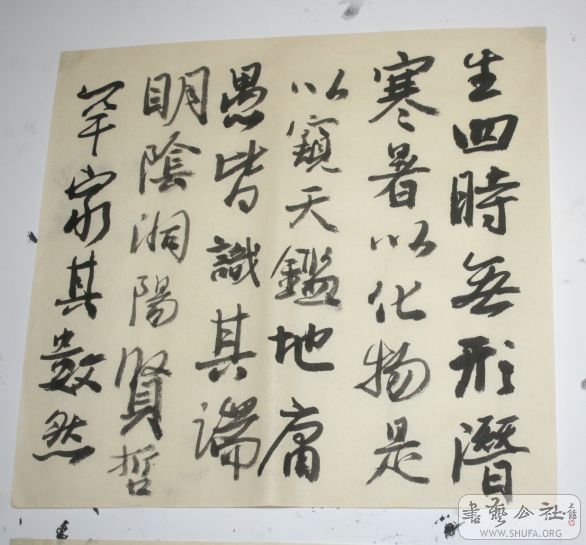 生四時無形潛
寒暑以化物是
以窺天鑑地庸
愚皆識其端
明陰洞陽賢哲
罕窮其數然
書藝公社
WWW.SHUFA.ORG